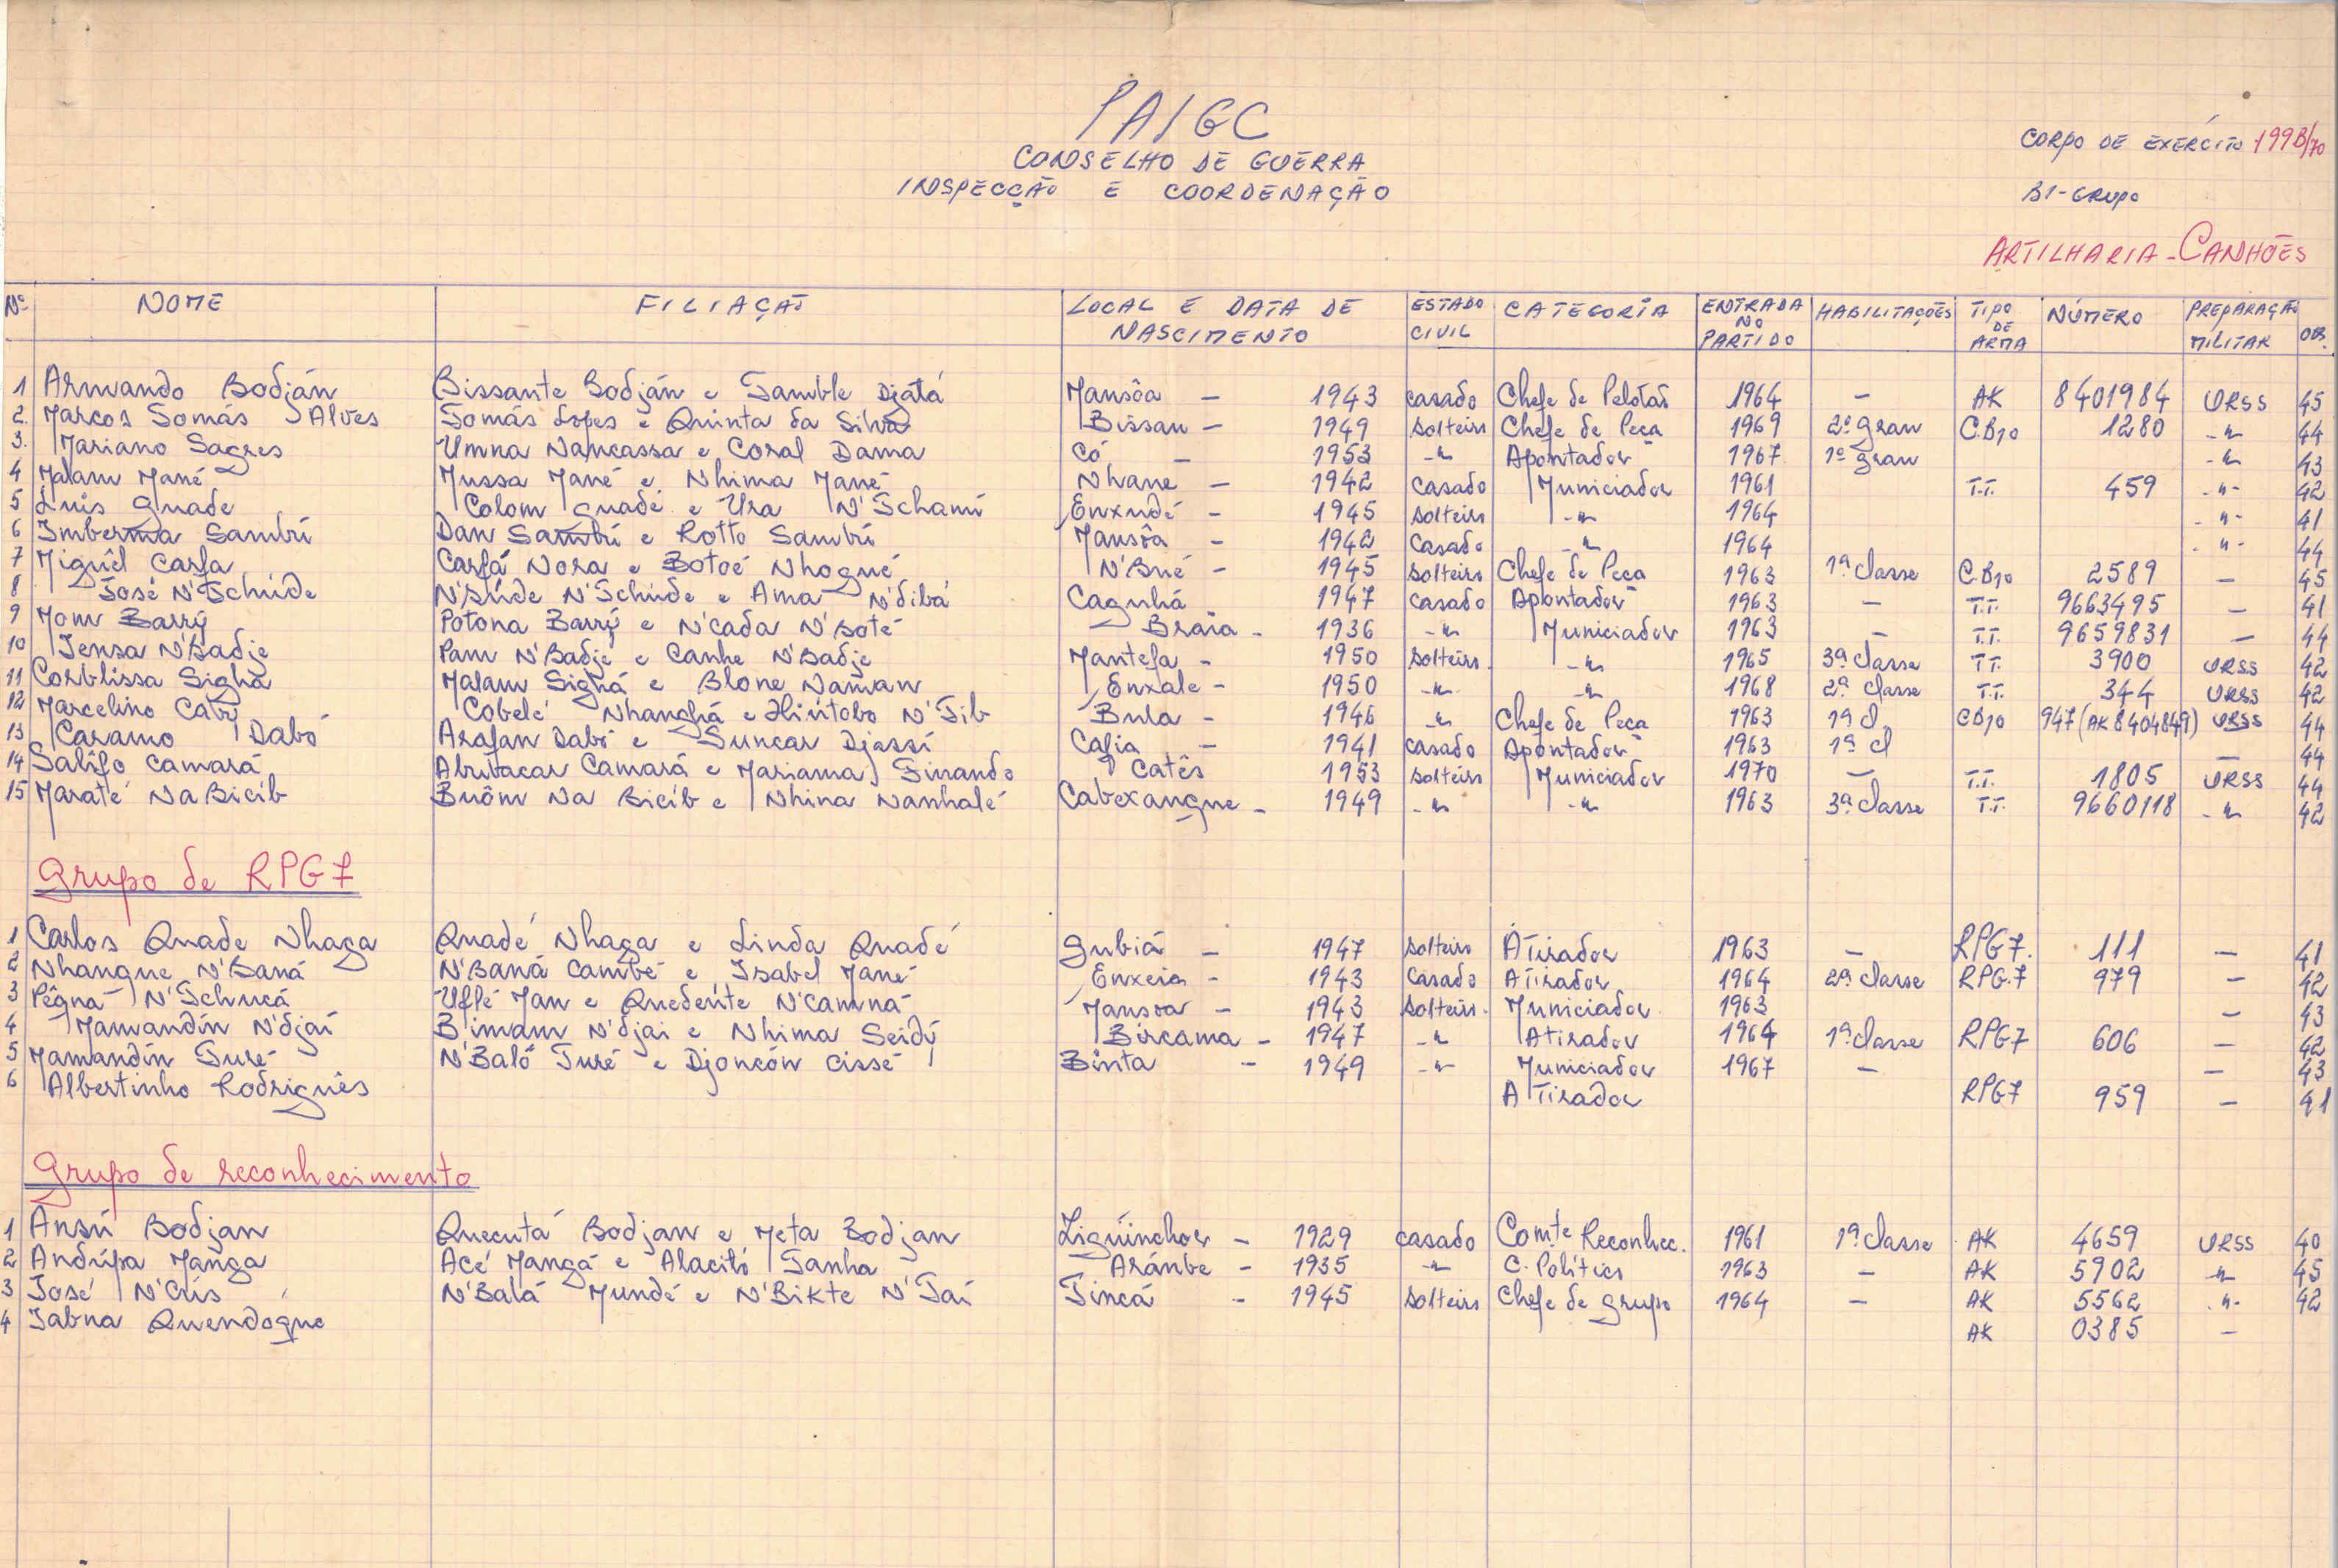 PAIGC
CONSELHO DE GUERRA
INSPECÇÃO E COORDENAÇÃO
CORPO DE EXÉRCITO 199B/70
BI-GRUPO
ARTILHARIA - CANHÕES
Nº NOME FILIAÇÃO LOCAL E DATA DE NASCIMENTO ESTADO CIVIL CATEGORIA ENTRADA NO PARTIDO HABILITAÇÕES TIPO DE ARMA NÚMERO PREPARAÇÃO MILITAR OBS.
1 Armando Bodján Bissante Bodján e Samble Djatá Mansôa - 1943 casado Chefe de Pelotão 1964 - AK 8401984 URSS 45
2. Marcos Tomás Alves Tomás Lopes e Quinta da Silva Bissau - 1949 solteiro Chefe de Peça 1969 2º grau C.B10 1280 -"- 44
3. Mariano Sagres Umna Nancassa e Coral Dama Có - 1953 -"- Apontador 1967 1º grau -"- 43
4 Malam Mané Mussa Mané e Nhima Mané Nhane - 1942 casado Municiador 1961 T.T. 459 -"- 42
5 Luis Quade Colom Quadé e Ura N'Tchami Enxudé - 1945 solteiro -"- 1964 -"- 41
6 Imberma Sambú Dan Sambú e Rotto Sambú Mansôa - 1942 casado -"- 1964 -"- 44
7 Miguel Carfa Carfá Nora e Botoé Nhogué N'Bué - 1945 solteiro Chefe de Peça 1963 1ª classe C.B10 2589 - 45
8 José N'Tchude N'Búde N'Tchude e Ama N'dibá Caguhá 1947 casado Apontador 1963 - T.T. 9663495 - 41
9 Mom Barrý Potona Barrý e N'cada N'Boté Braia - 1936 -"- Municiador 1963 - T.T. 9659831 - 44
10 Tensa N'Badje Pam N'Badje e Canhe N'Badje Mantefa - 1950 solteiro -"- 1965 3ª classe T.T. 3900 URSS 42
11 Corblissa Sighá Malam Sighá e Blone Naman Enxale - 1950 -"- -"- 1968 2ª classe T.T. 344 URSS 42
12 Marcelino Cabý Cobelé Nhanghá e N'Tib Bula - 1946 -"- Chefe de Peça 1963 1ª cl CB10 947 (AK 8404849) URSS 44
13 Caramo Dabó Arafan Dabó e Suncar Djassi Cafia - 1941 casado Apontador 1963 1ª cl - 44
14 Salifo Camará Abubacar Camará e Mariama Sinando Catês 1953 solteiro Municiador 1970 - T.T. 1805 URSS 44
15 Maraté Na Bicib Buôm Na Bicíb e Nhina Nanhalé Cabexangue - 1949 -"- -"- 1963 3ª classe T.T. 9660118 -"- 42
Grupo de RPG7
1 Carlos Quade Nhaga Quadé Nhaga e Linda Quadé Gubiá - 1947 solteiro Atirador 1963 - RPG7. 111 - 41
2 Nhangue N'Baná N'Baná Cambé e Isabel Mané Enxeia - 1943 casado Atirador 1964 2ª classe RPG.7 979 - 42
3 Pêgna N'Tchucá Uflé Man e Quedente N'camna Mansoa - 1943 solteiro. Municiador 1963 - 43
4 Mamandin N'djai B'imam N'djai e Nhima Seidý Bircama - 1947 -"- Atirador 1964 1ª classe RPG7 606 - 42
5 Mamandin Turé N'Baló Turé e Djoncón Cissé Binta - 1949 -"- Municiador 1967 - - 43
6 Albertinho Rodriguês Atirador RPG7 959 - 41
Grupo de reconhecimento
1 Ansú Bodjan Quecutá Bodjan e Meta Bodjan Ziguinchor - 1929 casado Comte Reconhec. 1961 1ª classe AK 4659 URSS 40
2 Andúpa Manga Acé Mangá e Alacitó Tanha Aránbe - 1935 -"- C. Político 1963 - AK 5902 -"- 45
3 José N'Cris N'Balá Mundé e N'Bikte N'Tai Tincá - 1945 solteiro Chefe de grupo 1964 - AK 5562 -"- 42
4 Tabna Quendogue AK 0385 -